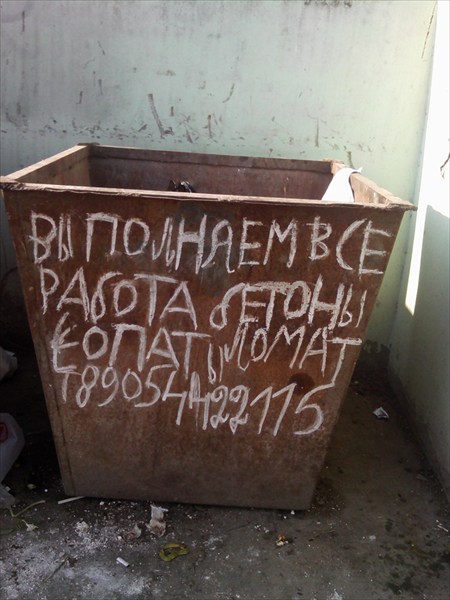 ВЫПОЛНЯЕМ ВСЕ
РАБОТА бЕТОНЫ
КОПАТЫ ЛОМАТ
т89054422115